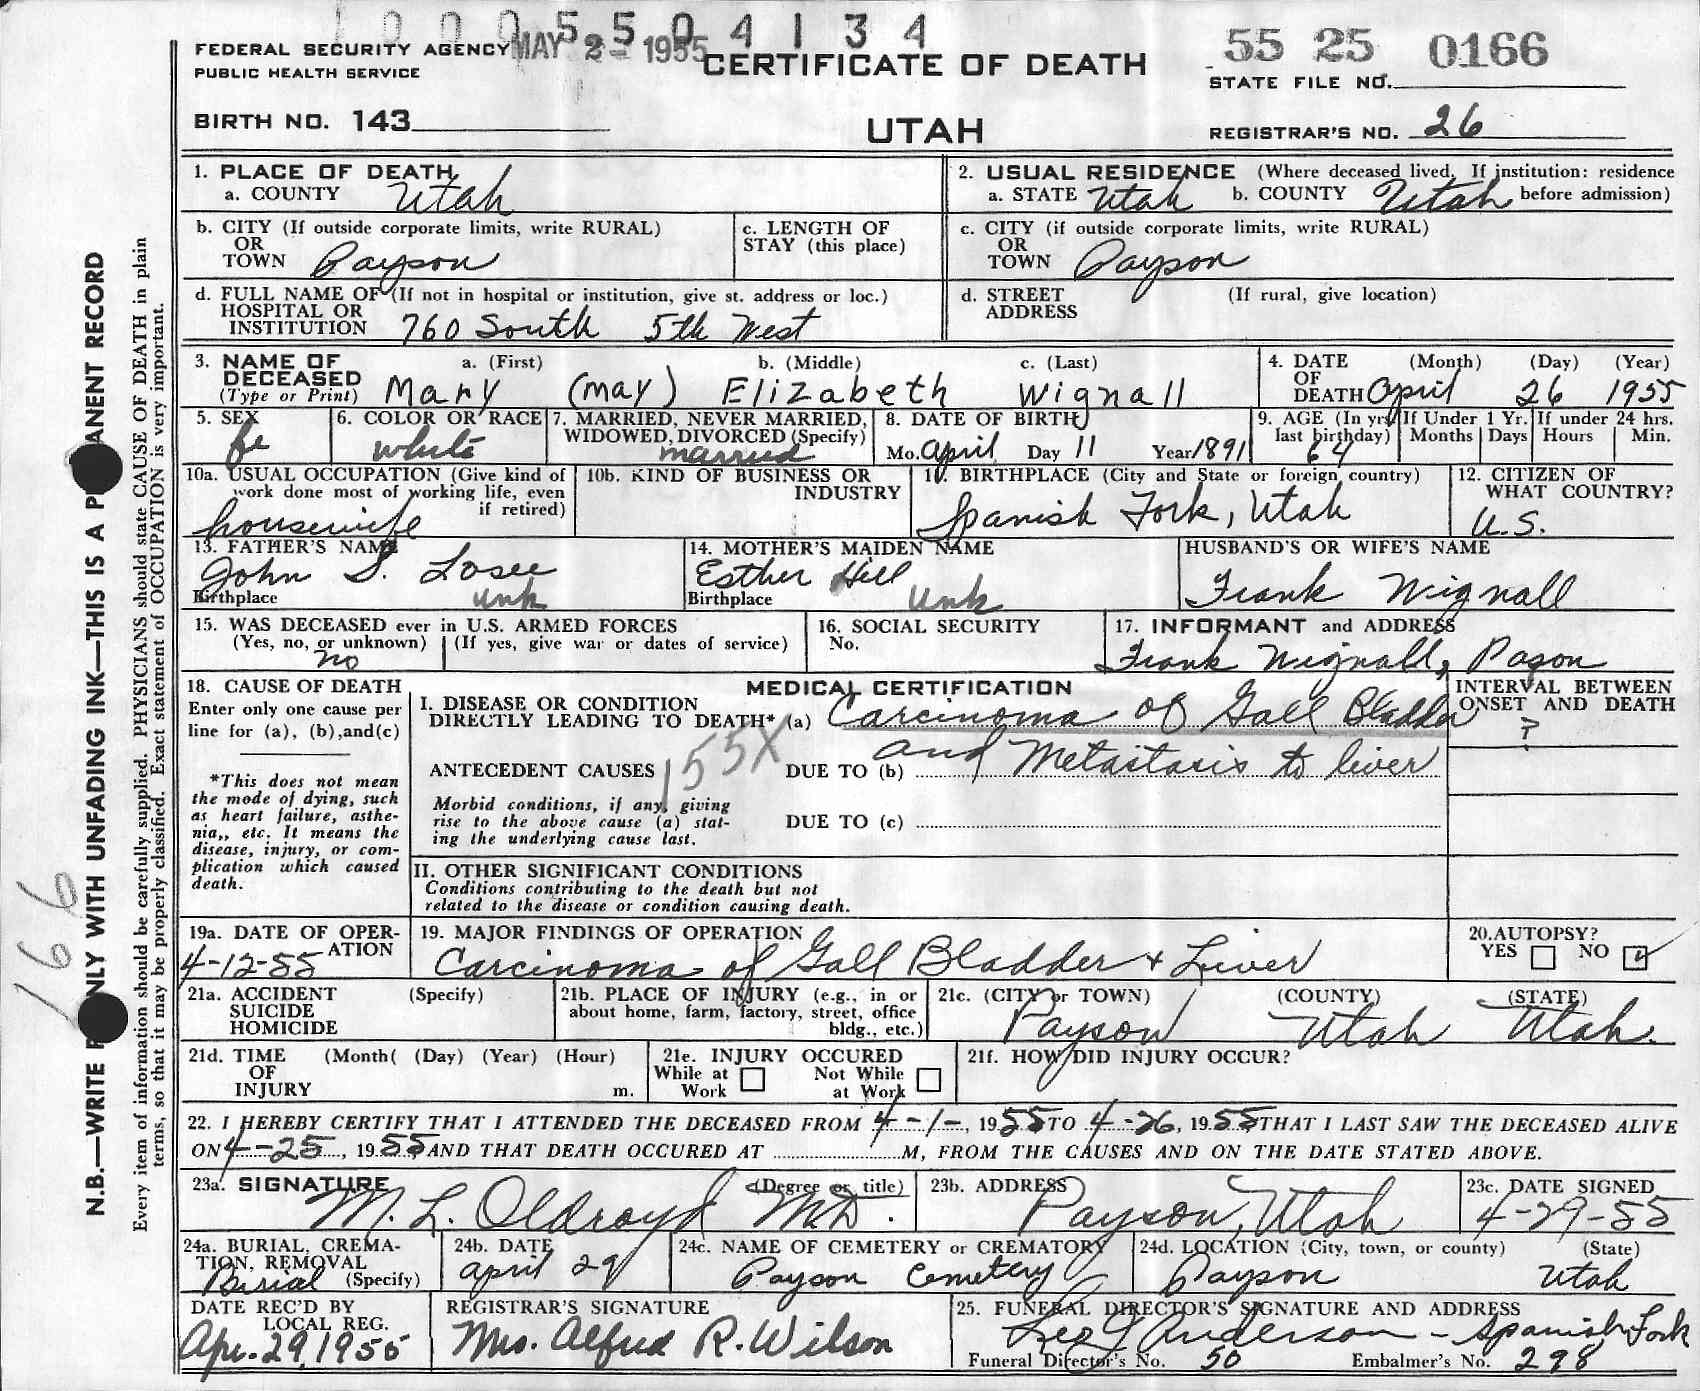 1000 5504134
FEDERAL SECURITY AGENCY MAY 2 - 1955
PUBLIC HEALTH SERVICE
CERTIFICATE OF DEATH
55 25 0166
STATE FILE NO.
BIRTH NO. 143
UTAH
REGISTRAR'S NO. 26
1. PLACE OF DEATH
a. COUNTY Utah
2. USUAL RESIDENCE (Where deceased lived. If institution: residence
a. STATE Utah b. COUNTY Utah before admission)
b. CITY (If outside corporate limits, write RURAL)
OR
TOWN Payson
c. LENGTH OF
STAY (this place)
c. CITY (if outside corporate limits, write RURAL)
OR
TOWN Payson
d. FULL NAME OF (If not in hospital or institution, give st. address or loc.)
HOSPITAL OR
INSTITUTION 760 South 5th West
d. STREET (If rural, give location)
ADDRESS
3. NAME OF a. (First) b. (Middle) c. (Last)
DECEASED
(Type or Print) Mary (may) Elizabeth Wignall
4. DATE (Month) (Day) (Year)
OF
DEATH April 26 1955
5. SEX
fe
6. COLOR OR RACE
white
7. MARRIED, NEVER MARRIED,
WIDOWED, DIVORCED (Specify)
married
8. DATE OF BIRTH
Mo. April Day 11 Year 1891
9. AGE (In yrs. If Under 1 Yr. If under 24 hrs.
last birthday) Months Days Hours Min.
64
10a. USUAL OCCUPATION (Give kind of
work done most of working life, even
if retired)
housewife
10b. KIND OF BUSINESS OR
INDUSTRY
11. BIRTHPLACE (City and State or foreign country)
Spanish Fork, Utah
12. CITIZEN OF
WHAT COUNTRY?
U.S.
13. FATHER'S NAME
John S. Losee
Birthplace unk
14. MOTHER'S MAIDEN NAME
Esther Hill
Birthplace Unk
HUSBAND'S OR WIFE'S NAME
Frank Wignall
15. WAS DECEASED ever in U.S. ARMED FORCES
(Yes, no, or unknown) (If yes, give war or dates of service)
no
16. SOCIAL SECURITY
No.
17. INFORMANT and ADDRESS
Frank Wignall, Pason
18. CAUSE OF DEATH
Enter only one cause per
line for (a), (b), and (c)
*This does not mean
the mode of dying, such
as heart failure, asthe-
nia,, etc. It means the
disease, injury, or com-
plication which caused
death.
MEDICAL CERTIFICATION
I. DISEASE OR CONDITION
DIRECTLY LEADING TO DEATH* (a) Carcinoma of Gall Bladder
155X
ANTECEDENT CAUSES DUE TO (b) and Metastasis to liver
Morbid conditions, if any, giving
rise to the above cause (a) stat-
ing the underlying cause last.
DUE TO (c)
INTERVAL BETWEEN
ONSET AND DEATH
?
II. OTHER SIGNIFICANT CONDITIONS
Conditions contributing to the death but not
related to the disease or condition causing death.
19a. DATE OF OPER-
ATION
4-12-55
19. MAJOR FINDINGS OF OPERATION
Carcinoma of Gall Bladder + Liver
20. AUTOPSY?
YES NO
21a. ACCIDENT (Specify)
SUICIDE
HOMICIDE
21b. PLACE OF INJURY (e.g., in or
about home, farm, factory, street, office
bldg., etc.)
21c. (CITY or TOWN) (COUNTY) (STATE)
Payson Utah Utah.
21d. TIME (Month( (Day) (Year) (Hour)
OF
INJURY m.
21e. INJURY OCCURED
While at Not While
Work at Work
21f. HOW DID INJURY OCCUR?
22. I HEREBY CERTIFY THAT I ATTENDED THE DECEASED FROM 4-1-, 1955 TO 4-26, 1955 THAT I LAST SAW THE DECEASED ALIVE
ON 4-25, 1955 AND THAT DEATH OCCURED AT M, FROM THE CAUSES AND ON THE DATE STATED ABOVE.
23a. SIGNATURE (Degree or title)
M. L. Oldroyd M.D.
23b. ADDRESS
Payson, Utah
23c. DATE SIGNED
4-29-55
24a. BURIAL, CREMA-
TION, REMOVAL
Burial (Specify)
24b. DATE
april 29
24c. NAME OF CEMETERY or CREMATORY
Payson Cemetery
24d. LOCATION (City, town, or county) (State)
Payson Utah
DATE REC'D BY
LOCAL REG.
Apr. 29, 1955
REGISTRAR'S SIGNATURE
Mrs. Alfred R. Wilson
25. FUNERAL DIRECTOR'S SIGNATURE AND ADDRESS
Anderson - Spanish Fork
Funeral Director's No. 50 Embalmer's No. 298
N.B.—WRITE NLY WITH UNFADING INK—THIS IS A P ANENT RECORD
Every item of information should be carefully supplied. PHYSICIANS should state CAUSE OF DEATH in plain
terms, so that it may be properly classified. Exact statement of OCCUPATION is very important.
166